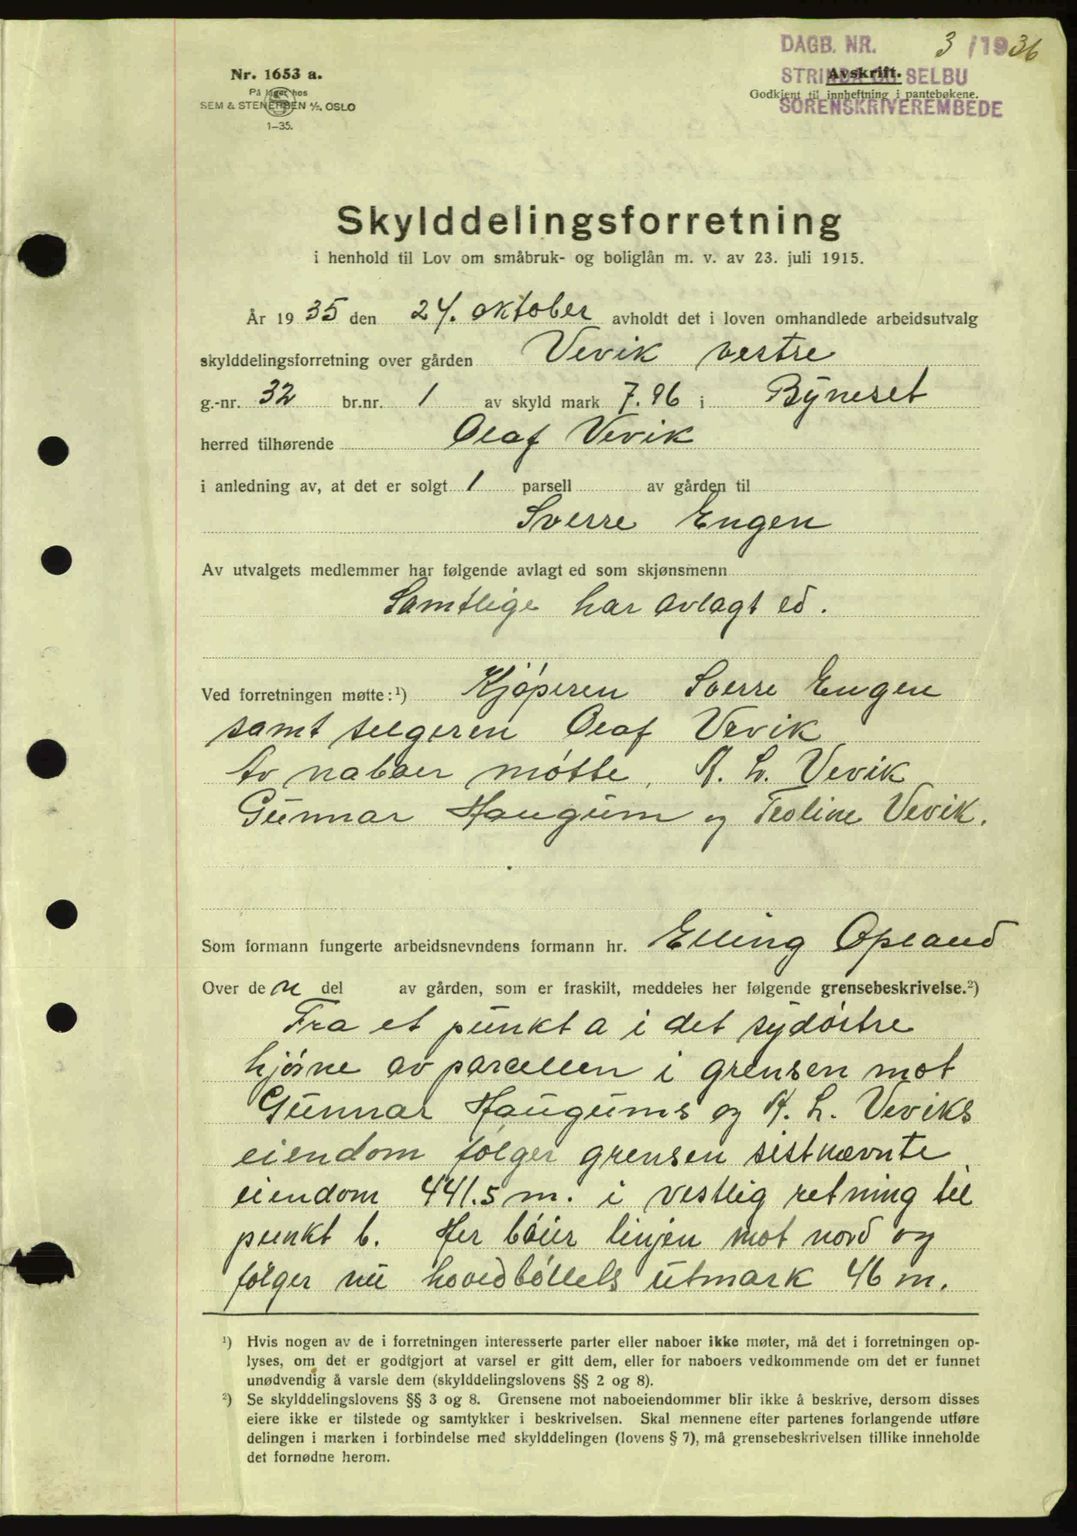 DAGB. NR. 3/1936
STRINDA OG SELBU
SORENSKRIVEREMBEDE
Nr. 1653 a.
På lager hos
SEM & STENERSEN A/S, OSLO
1-35.
Avskrift.
Godkjent til innheftning i pantebøkene.
Skylddelingsforretning
i henhold til Lov om småbruk- og boliglån m. v. av 23. juli 1915.
År 1935 den 24. oktober avholdt det i loven omhandlede arbeidsutvalg
skylddelingsforretning over gården Vevik vestre
g.-nr. 32 br.nr. 1 av skyld mark 7.96 i Byneset
herred tilhørende Olaf Vevik
i anledning av, at det er solgt 1 parsell av gården til
Sverre Engen
Av utvalgets medlemmer har følgende avlagt ed som skjønsmenn
Samtlige har avlagt ed.
Ved forretningen møtte:¹) Kjøperen Sverre Engen
samt selgeren Olaf Vevik
Av naboer møtte, A. L. Vevik
Gunnar Haugum og Teoline Vevik.
Som formann fungerte arbeidsnevndens formann hr. Elling Opland
Over den del av gården, som er fraskilt, meddeles her følgende grensebeskrivelse.²)
Fra et punkt a i det sydøstre
hjørne av parcellen i grensen mot
Gunnar Haugums og A. L. Veviks
eiendom følger grensen sistnævnte
eiendom 441.5 m. i vestlig retning til
punkt b. Her bøier linjen mot nord og
følger nu hovedbøllets utmark 46 m.
¹) Hvis nogen av de i forretningen interesserte parter eller naboer ikke møter, må det i forretningen op-
lyses, om det er godtgjort at varsel er gitt dem, eller for naboers vedkommende om det er funnet
unødvendig å varsle dem (skylddelingslovens §§ 2 og 8).
²) Se skylddelingslovens §§ 3 og 8. Grensene mot naboeiendommer blir ikke å beskrive, dersom disses
eiere ikke er tilstede og samtykker i beskrivelsen. Skal mennene efter partenes forlangende utføre
delingen i marken i forbindelse med skylddelingen (lovens § 7), må grensebeskrivelsen tillike inneholde
det fornødne herom.